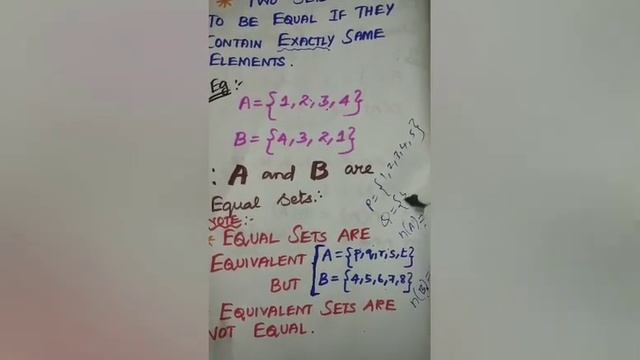 TWO SETS
TO BE EQUAL IF THEY
CONTAIN EXACTLY SAME
ELEMENTS.
Eg:-
A={1,2,3,4}
B={4,3,2,1}
∴ A and B are
Equal sets.
P={1,2,3,4,5}
Q={
n(A)=
NOTE:-
* EQUAL SETS ARE
EQUIVALENT
BUT
A={p,q,r,s,t}
B={4,5,6,7,8}
n(B)=
EQUIVALENT SETS ARE
NOT EQUAL.